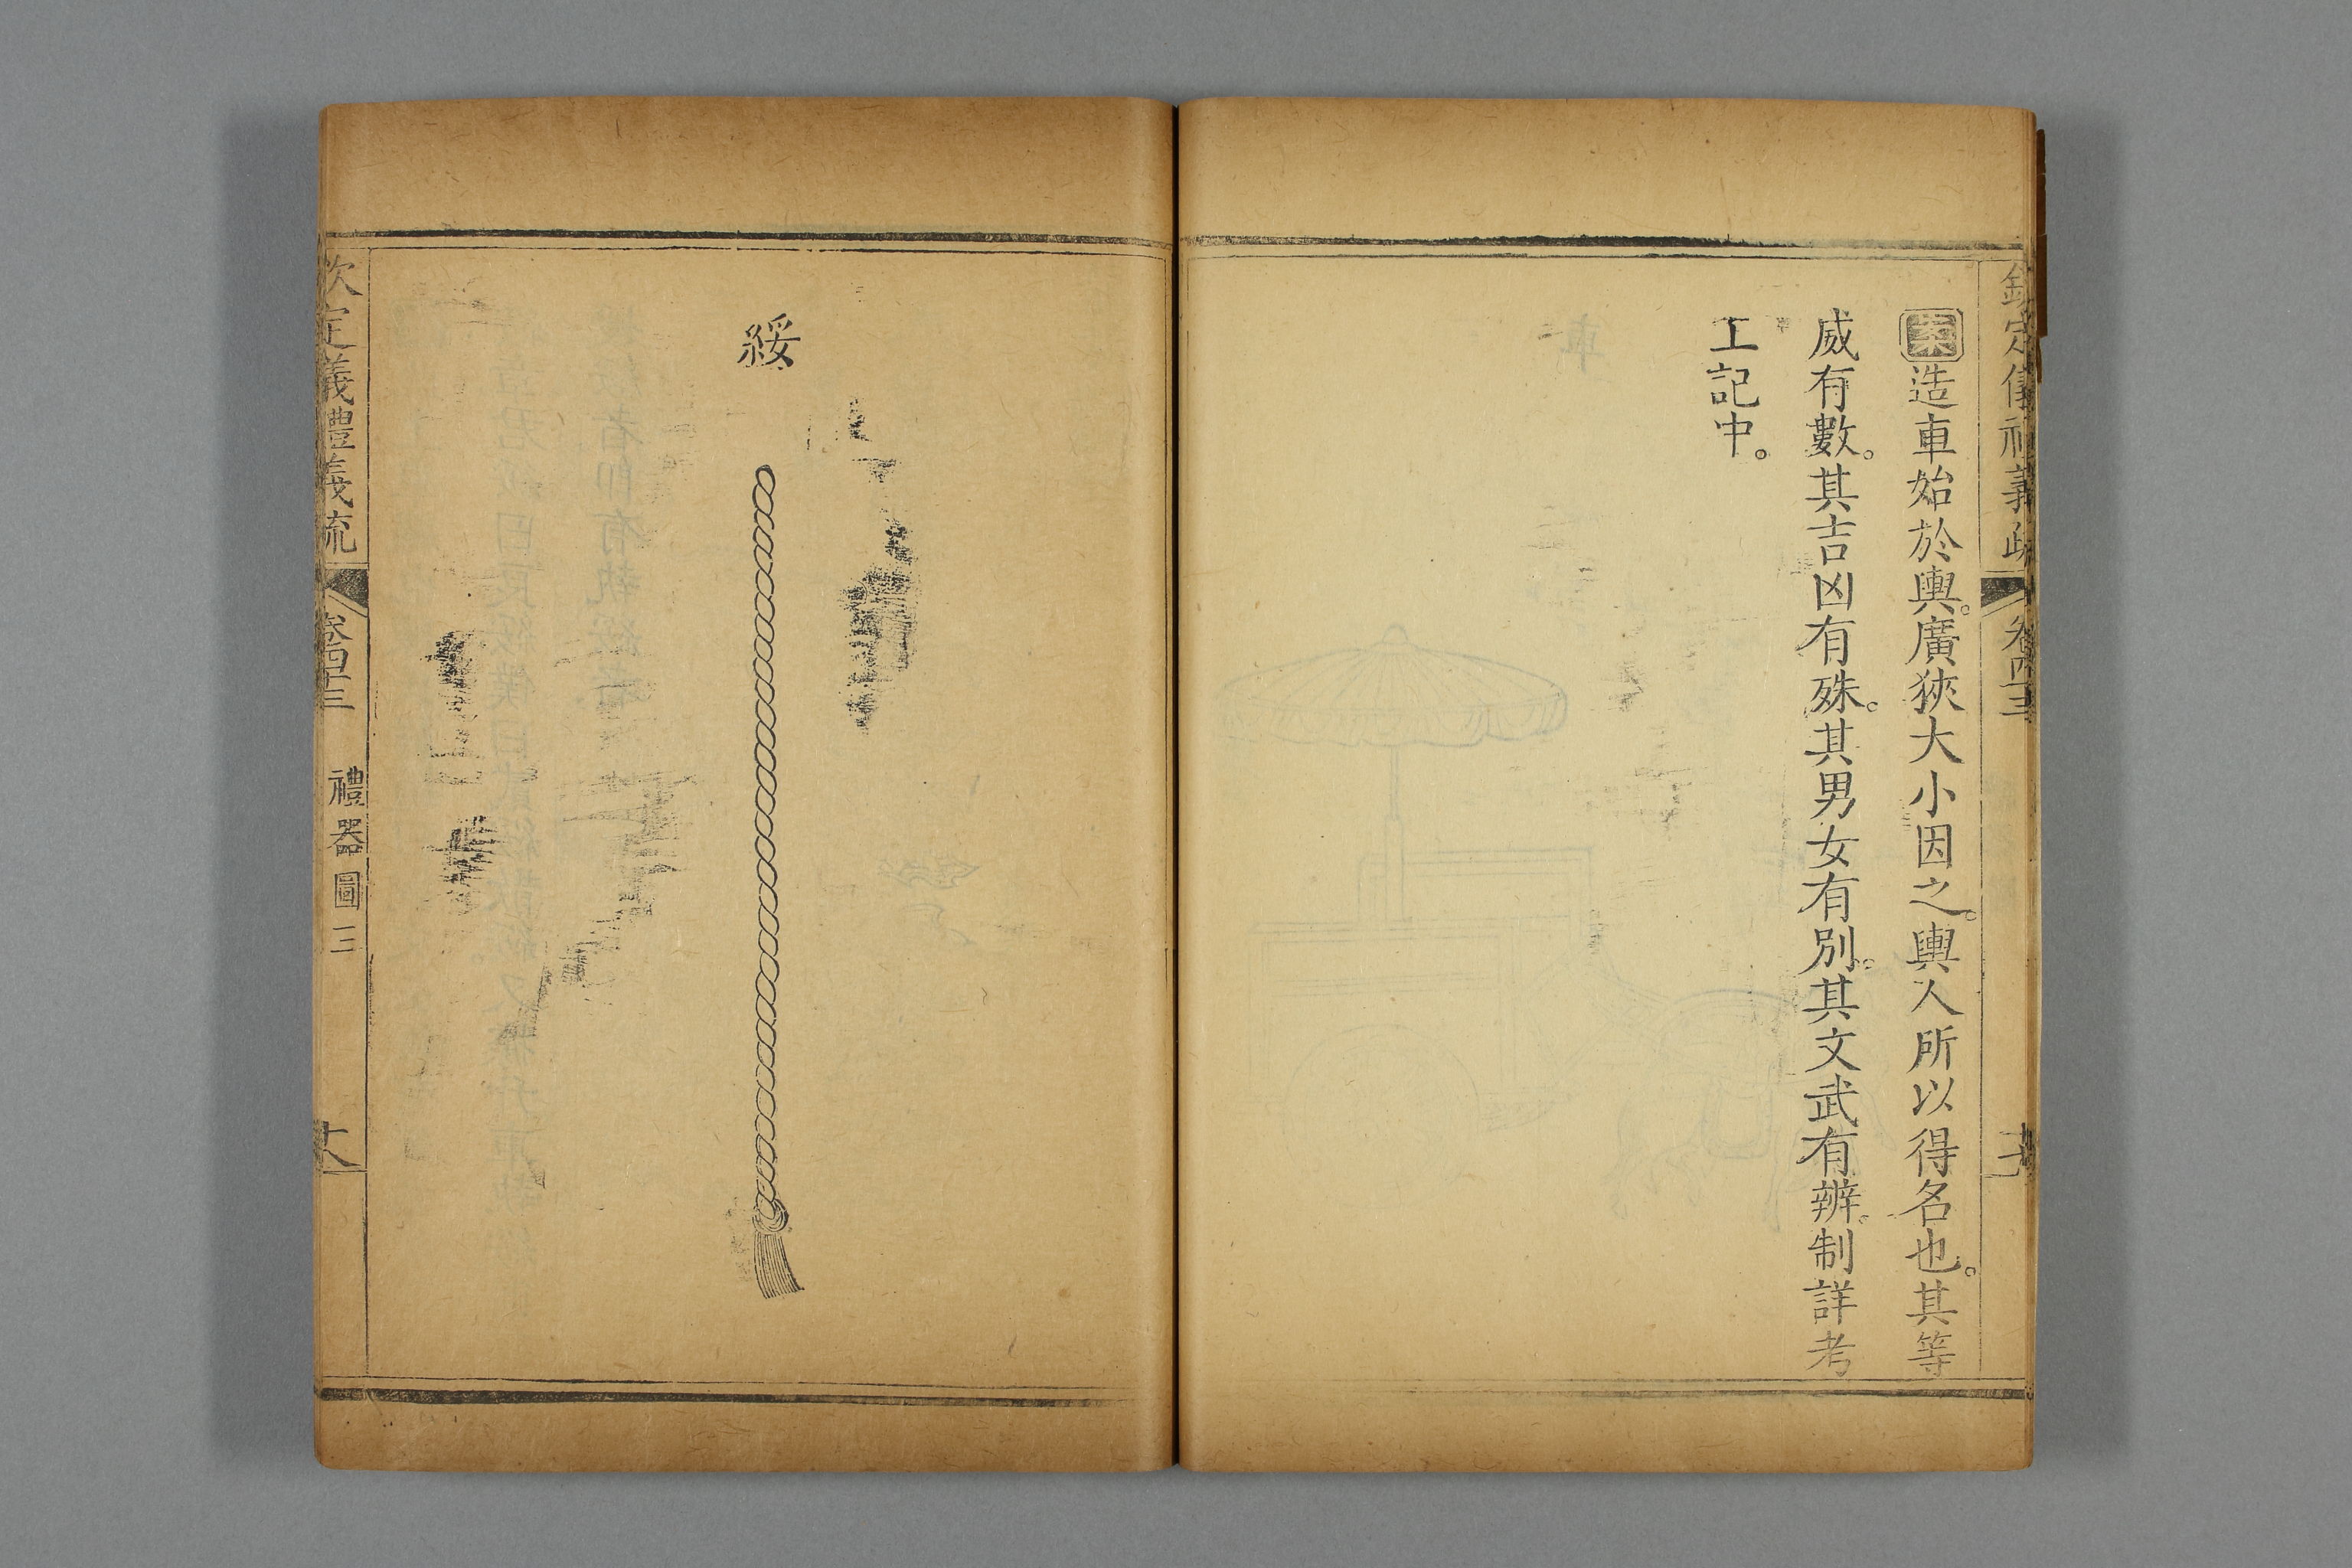 欽定儀禮義疏 卷四十三
案造車始於輿。廣狹大小因之。輿人所以得名也。其等
威有數。其吉凶有殊。其男女有別。其文武有辨。制詳考
工記中。
綏
欽定義禮義疏 卷四十三 禮器圖三